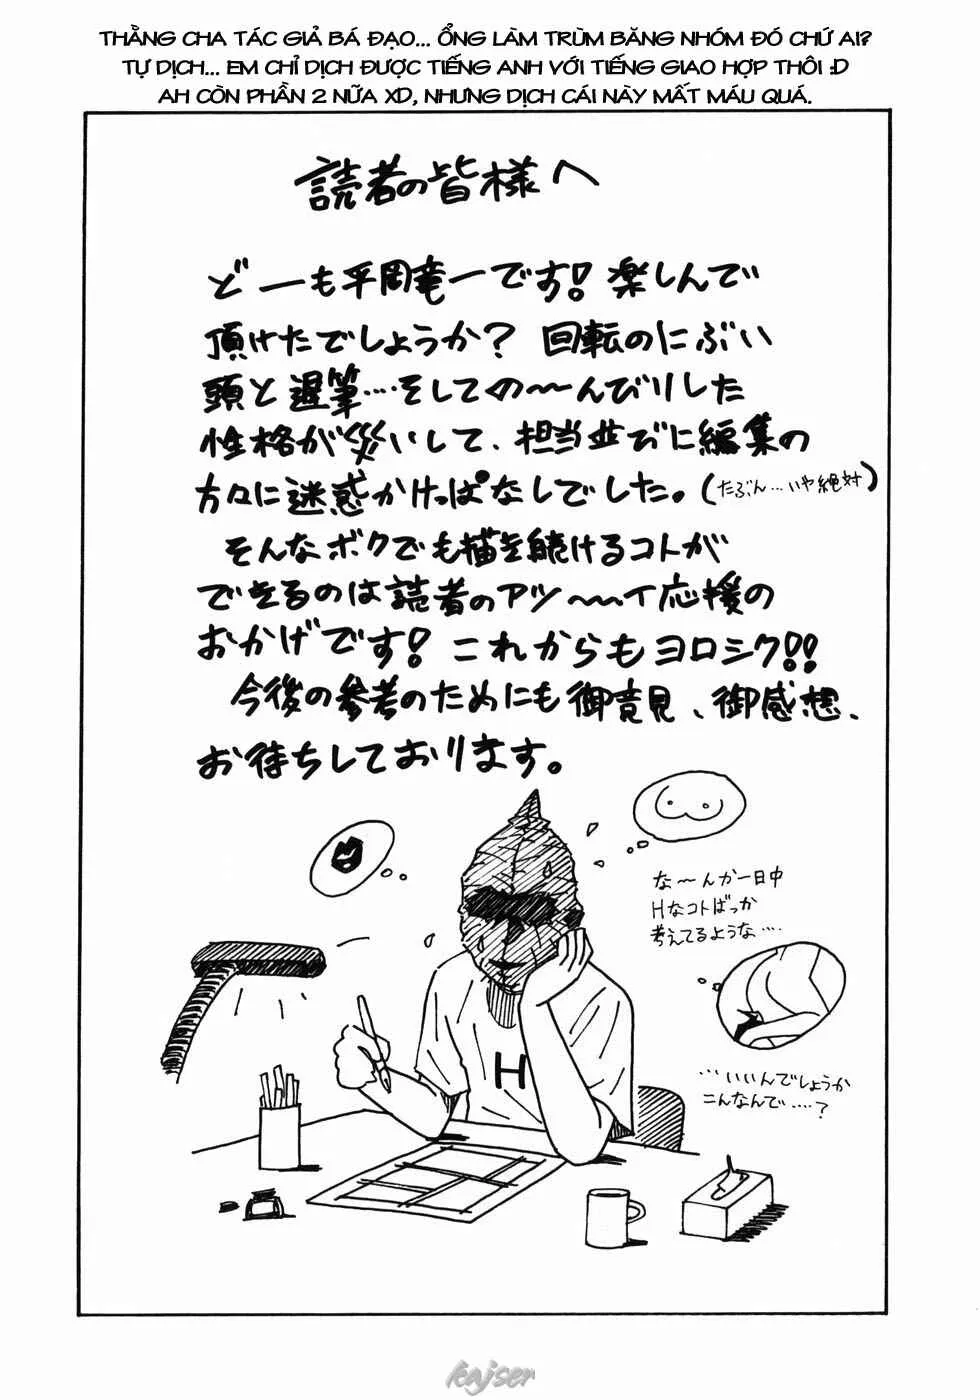 THẰNG CHA TÁC GIẢ BÁ ĐẠO... ỔNG LÀM TRÙM BĂNG NHÓM ĐÓ CHỨ AI?
TỰ DỊCH... EM CHỈ DỊCH ĐƯỢC TIẾNG ANH VỚI TIẾNG GIAO HỢP THÔI :D
AH CÒN PHẦN 2 NỮA XD, NHƯNG DỊCH CÁI NÀY MẤT MÁU QUÁ.
読者の皆様へ
どーも平岡竜一です!楽しんで
頂けたでしょうか?回転のにぶい
頭と遅筆…そしての〜んびりした
性格が災いして、担当並びに編集の
方々に迷惑かけっぱなしでした。(たぶん…いや絶対)
そんなボクでも描き続けるコトが
できるのは読者のアツ〜イ応援の
おかげです!これからもヨロシク!!
今後の参考のためにも御意見、御感想、
お待ちしております。
な〜んか一日中
Hなコトばっか
考えてるような…
H
…いいんでしょうか
こんなんで……?
kajser